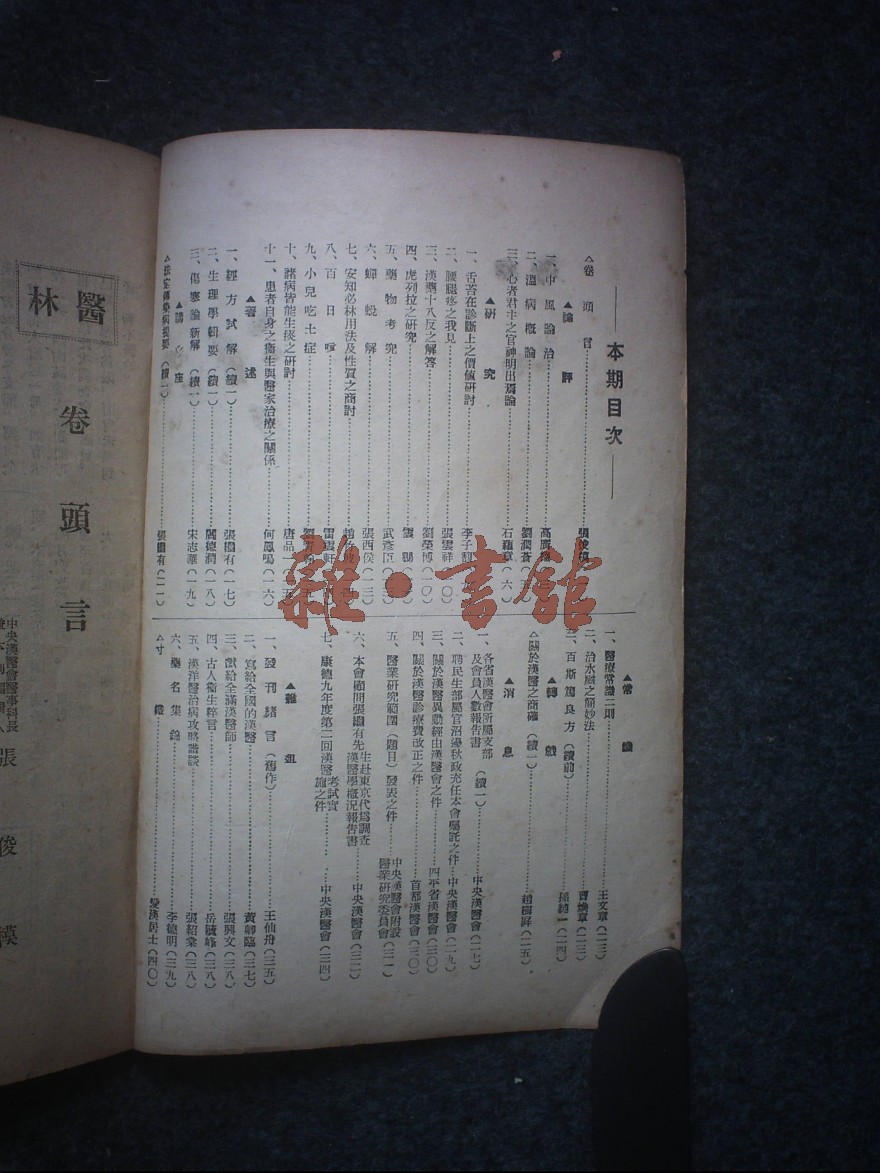 本期目次
△卷頭言 張俊模
▲論評
一、中風論治
二、溫病概論 劉潤蒼(五)
三、心者君主之官神明出焉論 石蘊華(六)
▲研究
一、舌苔在診斷上之價値研討 李子
二、腰腿疼之我見 張雲祥(一〇)
三、漢藥十八反之解答 劉榮博(一〇)
四、虎列拉之研究
五、藥物考究 武彥臣(一三)
六、蟬蛻解 張西侯(一三)
七、安知必林用法及性質之商討
八、百日咳 雷雲軒
九、小兒吃土症
十、諸病皆能生痰之研討 唐品一
十一、患者自身之衞生與醫家治療之關係 何鳳鳴(一六)
▲著述
一、經方試解(續一) 張繼有(一七)
二、生理學輯要(續一) 閻德潤(一八)
三、傷寒論新解(續一) 宋志華(一九)
▲講座
△法定傳染病提要(續一) 張繼有(二一)
▲常識
一、醫療常識二則 王文章(二三)
二、治水臌之簡妙法 曹煥章(二三)
三、百斯篤良方(續前) 孫純一(二四)
▲轉載
△關於漢醫之商確(續一) 趙樹屏(二五)
▲消息
一、各省漢醫會所屬支部及會員人數報告書(續一) 中央漢醫會(二七)
二、聘民生部屬官沼邊秋政充任本會囑託之件 中央漢醫會(二九)
三、關於漢醫異動經由漢醫會之件 四平省漢醫會(三〇)
四、關於漢醫診療費改正之件 首都漢醫會(三〇)
五、醫業研究範圍(題目)發表之件 中央漢醫會附設醫業研究委員會(三一)
六、本會顧問張繼有先生赴東京代爲調查漢醫學概況報告書 中央漢醫會(三二)
七、康德九年度第二回漢醫考試實施之件 中央漢醫會(三四)
▲雜俎
一、發刊緖言(舊作) 王仙舟(三五)
二、寫給全國的漢醫 黃師臨(三七)
三、獻給全滿漢醫師 張興文(三八)
四、古人衞生粹言 岳毓峰(三八)
五、漢洋醫治病攻略諧談 張紹棠(三八)
六、藥名集錦 李德明(三九)
△寸鐵 愛漢居士(四〇)
醫林
卷頭言
中央漢醫會醫事科長
張俊模
雜·書館